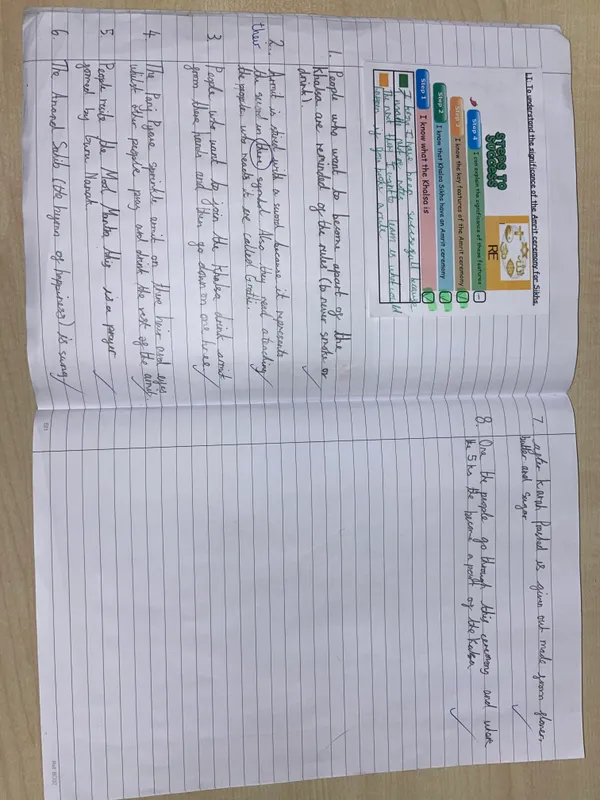 LI: To understand the significance of the Amrit ceremony for Sikhs.
STEPS TO SUCCESS!
RE
Step 4 I can explain the significance of these features
Step 3 I know the key features of the Amrit ceremony
Step 2 I know that Khalsa Sikhs have an Amrit ceremony
Step 1 I know what the Khalsa is
I have been successfull because
I made notes
The next thing I want to learn is what could
happen if you broke a rule
1. People who want to become apart of the
Khalsa are reminded of the rules (to never smoke or
drink).
2. Amrit is stired with a sword because it represents
their
the sword in there symbol. Also they read a reading
the people who reads it are called Granti.
3. People who want to join the Khalsa drink amrit
from there hands and then go down on one knee
4. The Panj Pyare sprinkle amrit on there hair and eyes
whilst other people pray and drink the rest of the amrit.
5. People recite the Mool Mantar this is a prayer
formed by Guru Nanak.
6. The Anand Sahib (the hymn of happiness) is sung
7. after Karah Prashad is given out made from flower,
butter and sugar
8. One the people go through this ceremony and where
the 5 ks the become a part of the Kalsa